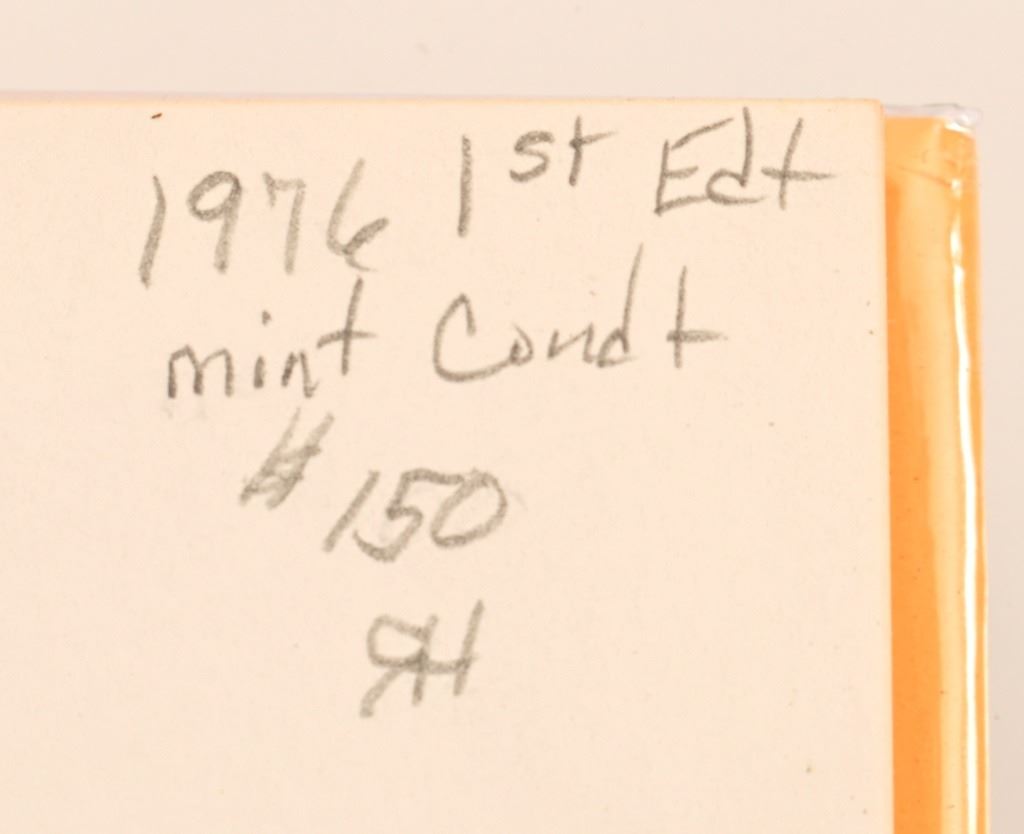 1976 1st Edt
mint Condt
$150